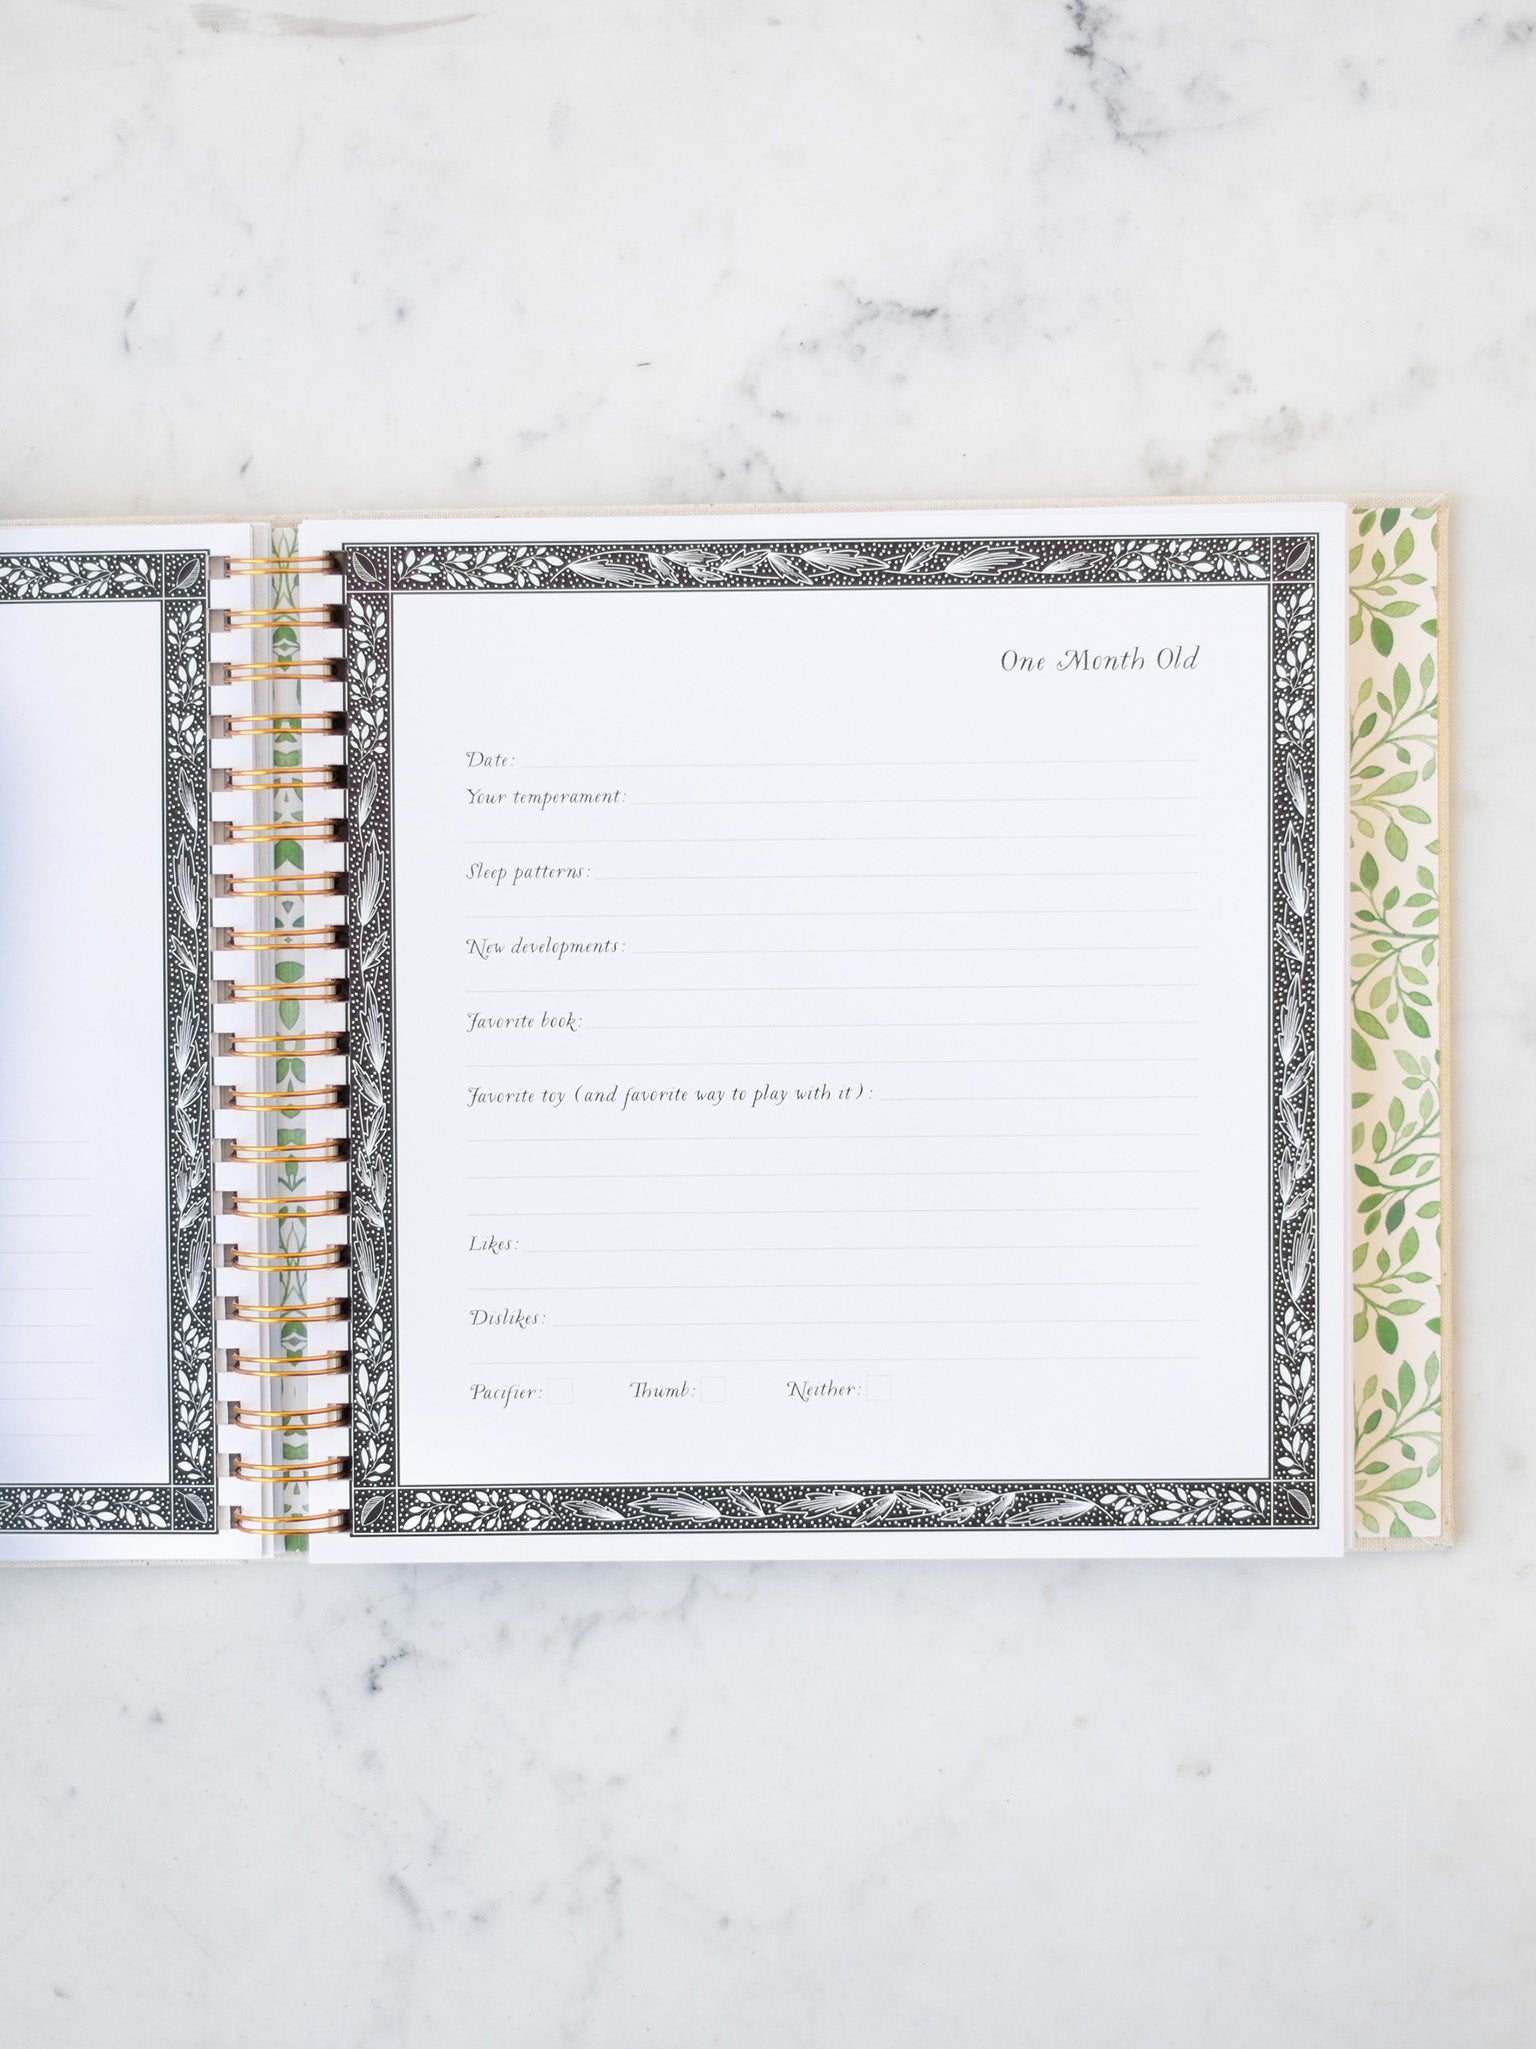 One Month Old
Date:
Your temperament:
Sleep patterns:
New developments:
Favorite book:
Favorite toy (and favorite way to play with it):
Likes:
Dislikes:
Pacifier: Thumb: Neither: